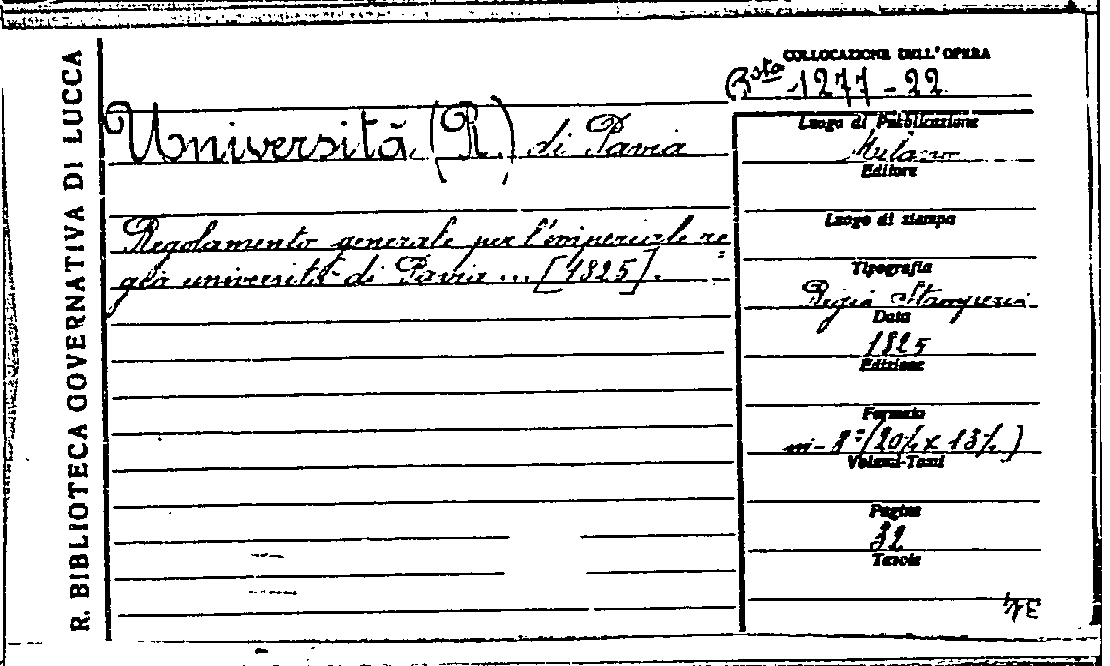 R. BIBLIOTECA GOVERNATIVA DI LUCCA
Università (R.) di Pavia
Regolamento generale per l'imperiale re=
gia università di Pavia ... [1825].
COLLOCAZIONE DELL'OPERA
Bsta 1277-22
Luogo di Pubblicazione
Milano
Editore
Luogo di stampa
Tipografia
Regia Stamperia
Data
1825
Edizione
Formato
in-8º (20½ x 13½)
Volumi-Tomi
Pagine
32
Tavole